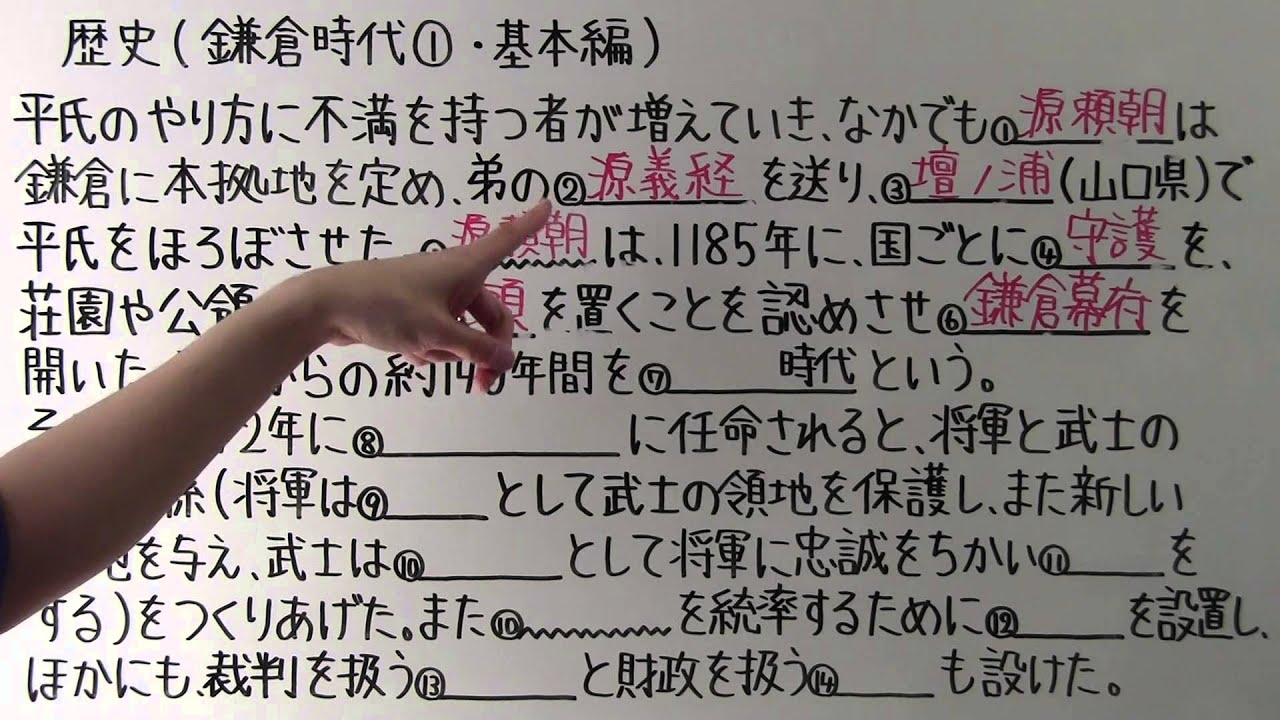 歴史(鎌倉時代①・基本編)
平氏のやり方に不満を持つ者が増えていき、なかでも①源頼朝は
鎌倉に本拠地を定め、弟の②源義経を送り、③壇ノ浦(山口県)で
平氏をほろぼさせた。源頼朝は、1185年に、国ごとに④守護を、
荘園や公領 頭を置くことを認めさせ⑥鎌倉幕府を
開いた からの約140年間を⑦ 時代という。
2年に⑧ に任命されると、将軍と武士の
(将軍は⑨ として武士の領地を保護し、また新しい
地を与え、武士は⑩ として将軍に忠誠をちかい⑪ を
する)をつくりあげた。また⑩ を統率するために⑫ を設置し、
ほかにも、裁判を扱う⑬ と財政を扱う⑭ も設けた。